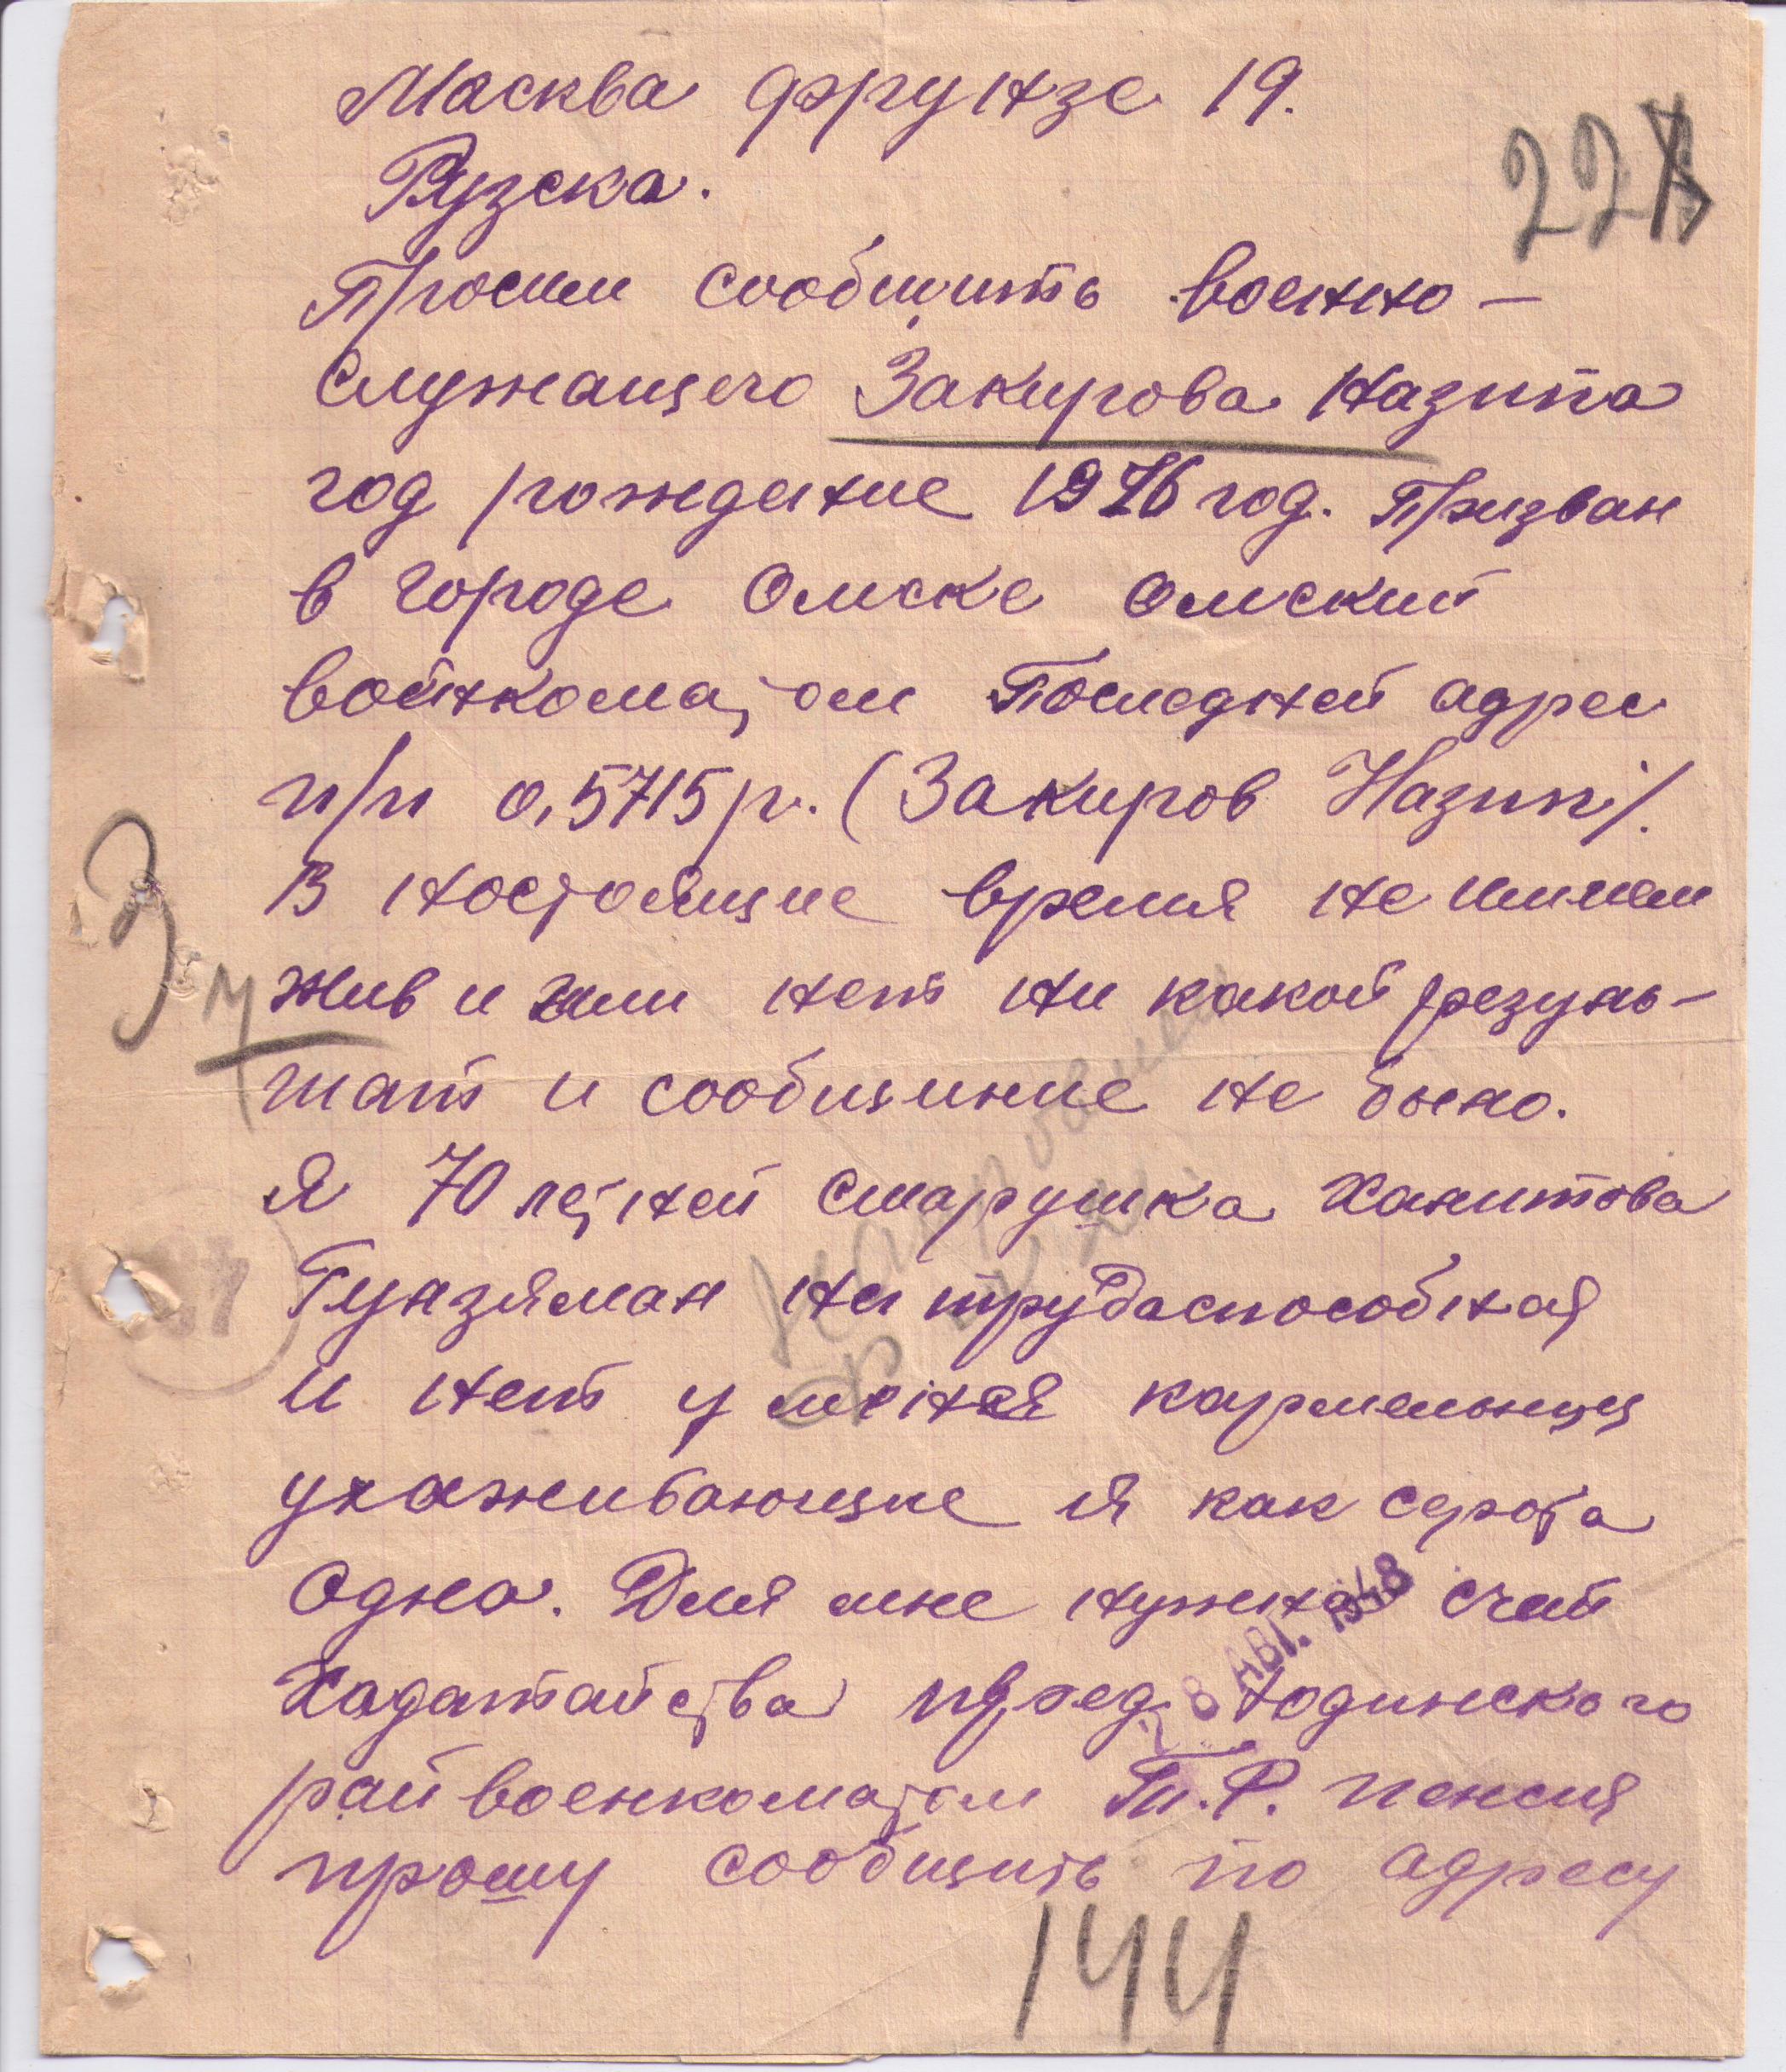 Москва фрунзе 19.
227
Просим сообщить военно-
служащего Закирова Назипа
год рождение 1916 год. Призван
в городе Омске Омский
войнкоматом Последней адрес
п/п 0,5715 р. (Закиров Назип).
Вностоящие время не имием
жив и или нет ни какой резуль-
тат и сообщиние не было.
Я 70 летней старушка Ханитова
Гулзяман не трудаспособная
и нет у меня кармельцы
ухаживающие я как серота
Одна. Для мне нужна счит
Хадатайства пред Юдинского
райвоенкоматом П.Р. пенсия
28 АВГ. 1948
прошу сообщить по адресу
144